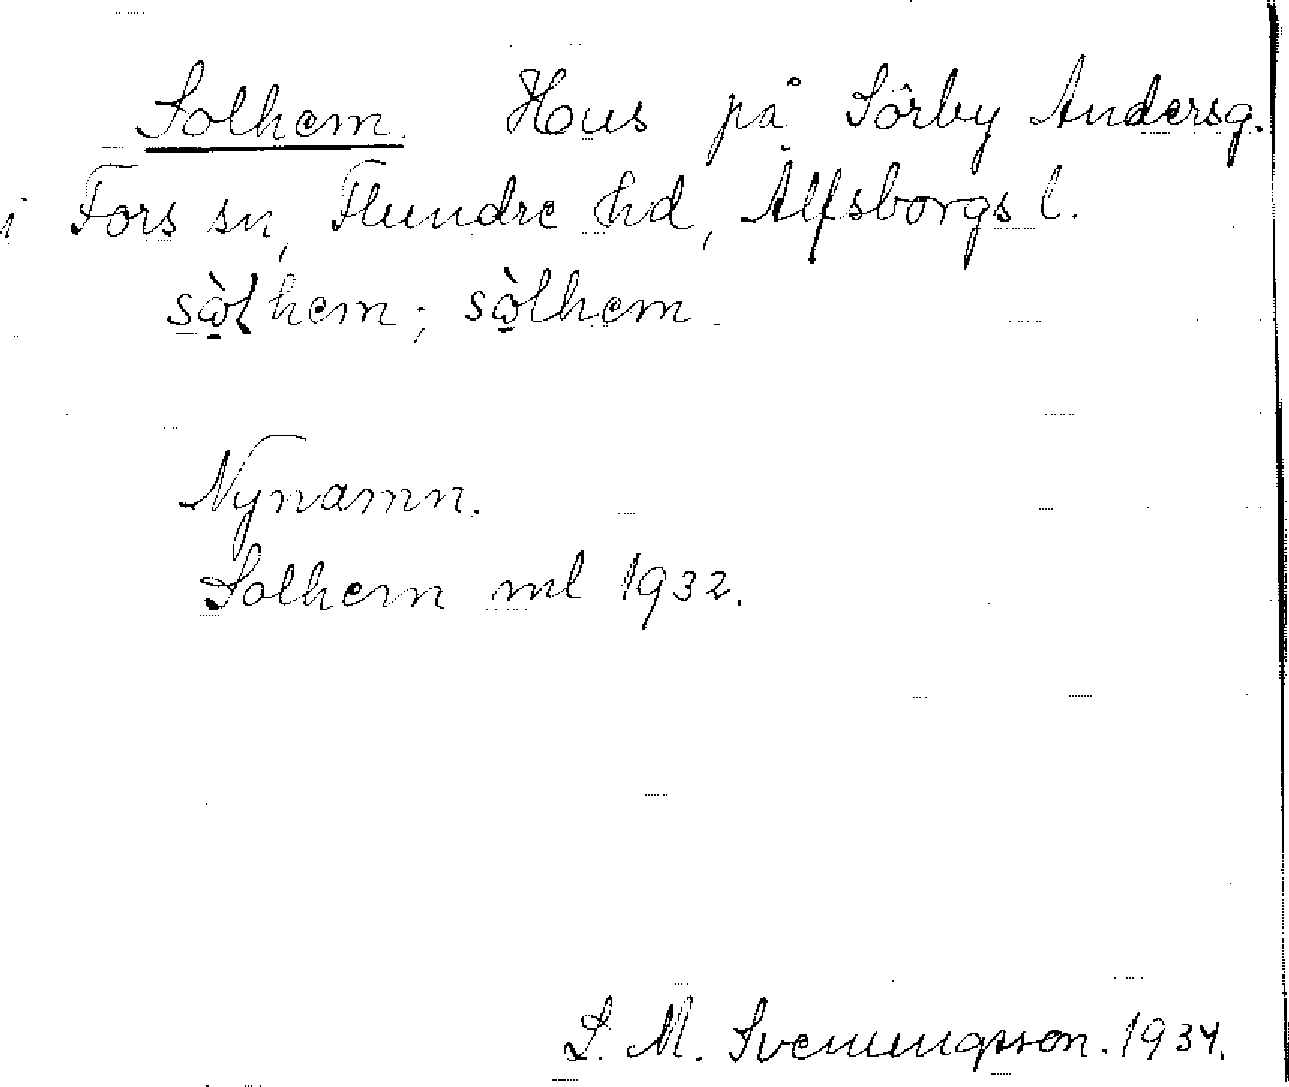 Solhem. Hus på Sörby Andersg.
i Fors sn, Flundre hd, Älfsborgs l.
sὰlhem; sὰlhem.
Nynamn.
Solhem ml 1932.
S. M. Svenungsson. 1934.